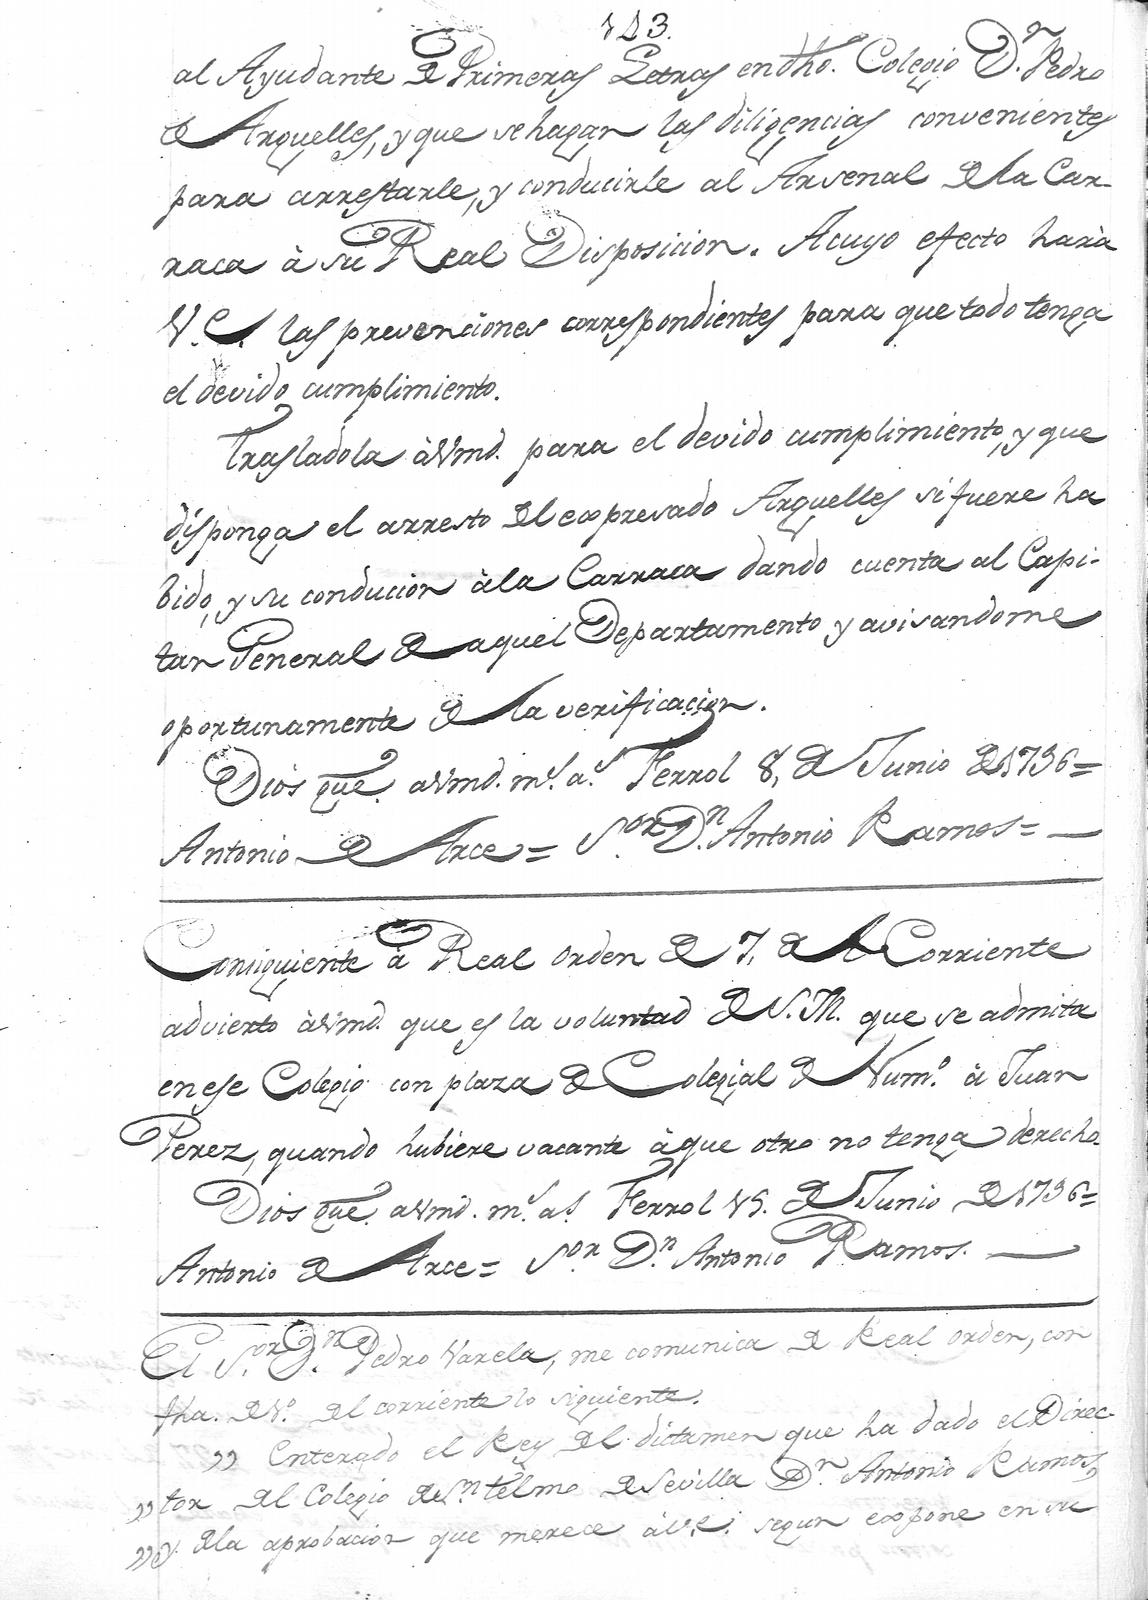 143.
al Ayudante de Primeras Letras en dho. Colegio D.n Pedro
de Arguelles, y que se hagan las diligencias convenientes
para arrestarle, y conducirle al Arsenal de la Car-
raca à su Real Disposicion. Acuyo efecto harà
V.E. las prevenciones correspondientes para que todo tenga
el devido cumplimiento.
Trasladola àVmd. para el devido cumplimiento, y que
disponga el arresto del expresado Arguelles si fuere ha
bido, y su conducion àla Carraca dando cuenta al Capi-
tan General de aquel Departamento y avisandome
oportunamente de la verificacion.
Dios gue. aVmd. m.s a.s Ferrol 8, de Junio de 1796=
Antonio de Arce= S.or D.n Antonio Ramos=
Consiguiente à Real orden de 7, del Corriente
advierto àVmd. que es la voluntad de S.M. que se admita
en ese Colegio con plaza de Colegial de Num.o à Juan
Perez, quando hubiere vacante à que otro no tenga derecho.
Dios gue. aVmd. m.s a.s Ferrol 15. de Junio de 1796=
Antonio de Arce= S.or D.n Antonio Ramos.
El S.or D.n Pedro Varela, me comunica de Real orden, con
fha. de 1.o del corriente lo siguiente.
" Enterado el Rey del dictamen que ha dado el Direc-
" tor del Colegio de S.n Telmo de Sevilla D.n Antonio Ramos,
" y de la aprobacion que merece àV.E. segun expone en su